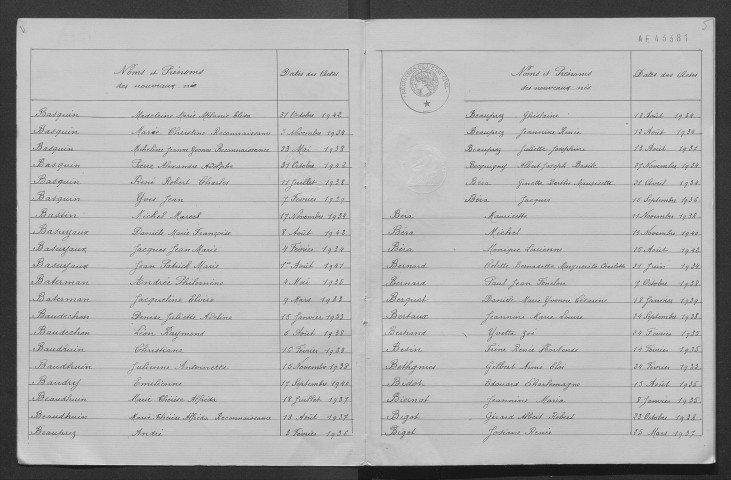 Noms et Prénoms Dates des Actes
des nouveaux-nés
Basquin Madeleine Marie Mélanie Elisa 31 Octobre 1942
Basquin Marie Christine Reconnaissance 2 Novembre 1934
Basquin Micheline Jeanne Yvonne Reconnaissance 23 Mai 1938
Basquin Pierre Alexandre Adolphe 31 Octobre 1942
Basquin René Robert Charles 11 Juillet 1938
Basquin Yves Jean 7 Février 1939
Bastin Michel Marcel 17 Novembre 1934
Basuyaux Danièle Marie Françoise 8 Août 1942
Basuyaux Jacques Jean Marie 4 Février 1934
Basuyaux Jean Patrick Marie 1er Août 1941
Baterman Andrée Philomène 4 Mai 1935
Baterman Jacqueline 9 Mars 1933
Baudechon Denise Juliette 15 Janvier 1933
Baudechon Léon Raymond 6 Août 1936
Baudhuin Christiane 15 Février 1933
Baudhuin Julienne Antoinette 13 Novembre 1938
Baudry Emilienne 17 Septembre 1940
Beaudhuin Marie Thérèse Alfrida 18 Juillet 1937
Beaudhuin Marie Thérèse Alfrida Reconnaissance 18 Août 1937
Beauprez André 2 Février 1936
5
AE46681
Noms et Prénoms Dates des Actes
des nouveaux-nés
Beauprez Ghislaine 12 Août 1934
Beauprez Jeannine Renée 12 Août 1934
Beauprez Juliette Joséphine 13 Août 1935
Becquigny Albert Joseph 27 Novembre 1934
Béra Ginette Berthe Mauricette 21 Avril 1934
Béra Jacques 10 Septembre 1936
Béra Mauricette 11 Novembre 1938
Béra Michel 14 Novembre 1940
Béra Monique 15 Août 1942
Bernard Colette Bernadette Marguerite Charlotte 21 Juin 1934
Bernard Paul Jean 7 Octobre 1938
Berquet Danièle Marie Yvonne 18 Janvier 1939
Bertaux Jeannine Marie Louise 24 Septembre 1938
Bertrand Yvette Zoé 14 Février 1935
Besin Renée Hortense 19 Février 1935
Bethgnies Gilbert Aimé Eloi 24 Février 1933
Bidot Edouard Charlemagne 15 Août 1935
Bierent Jeannine Maria 8 Janvier 1935
Bigot Gérard Albert Robert 23 Octobre 1938
Bigot Josiane Renée 25 Mars 1937